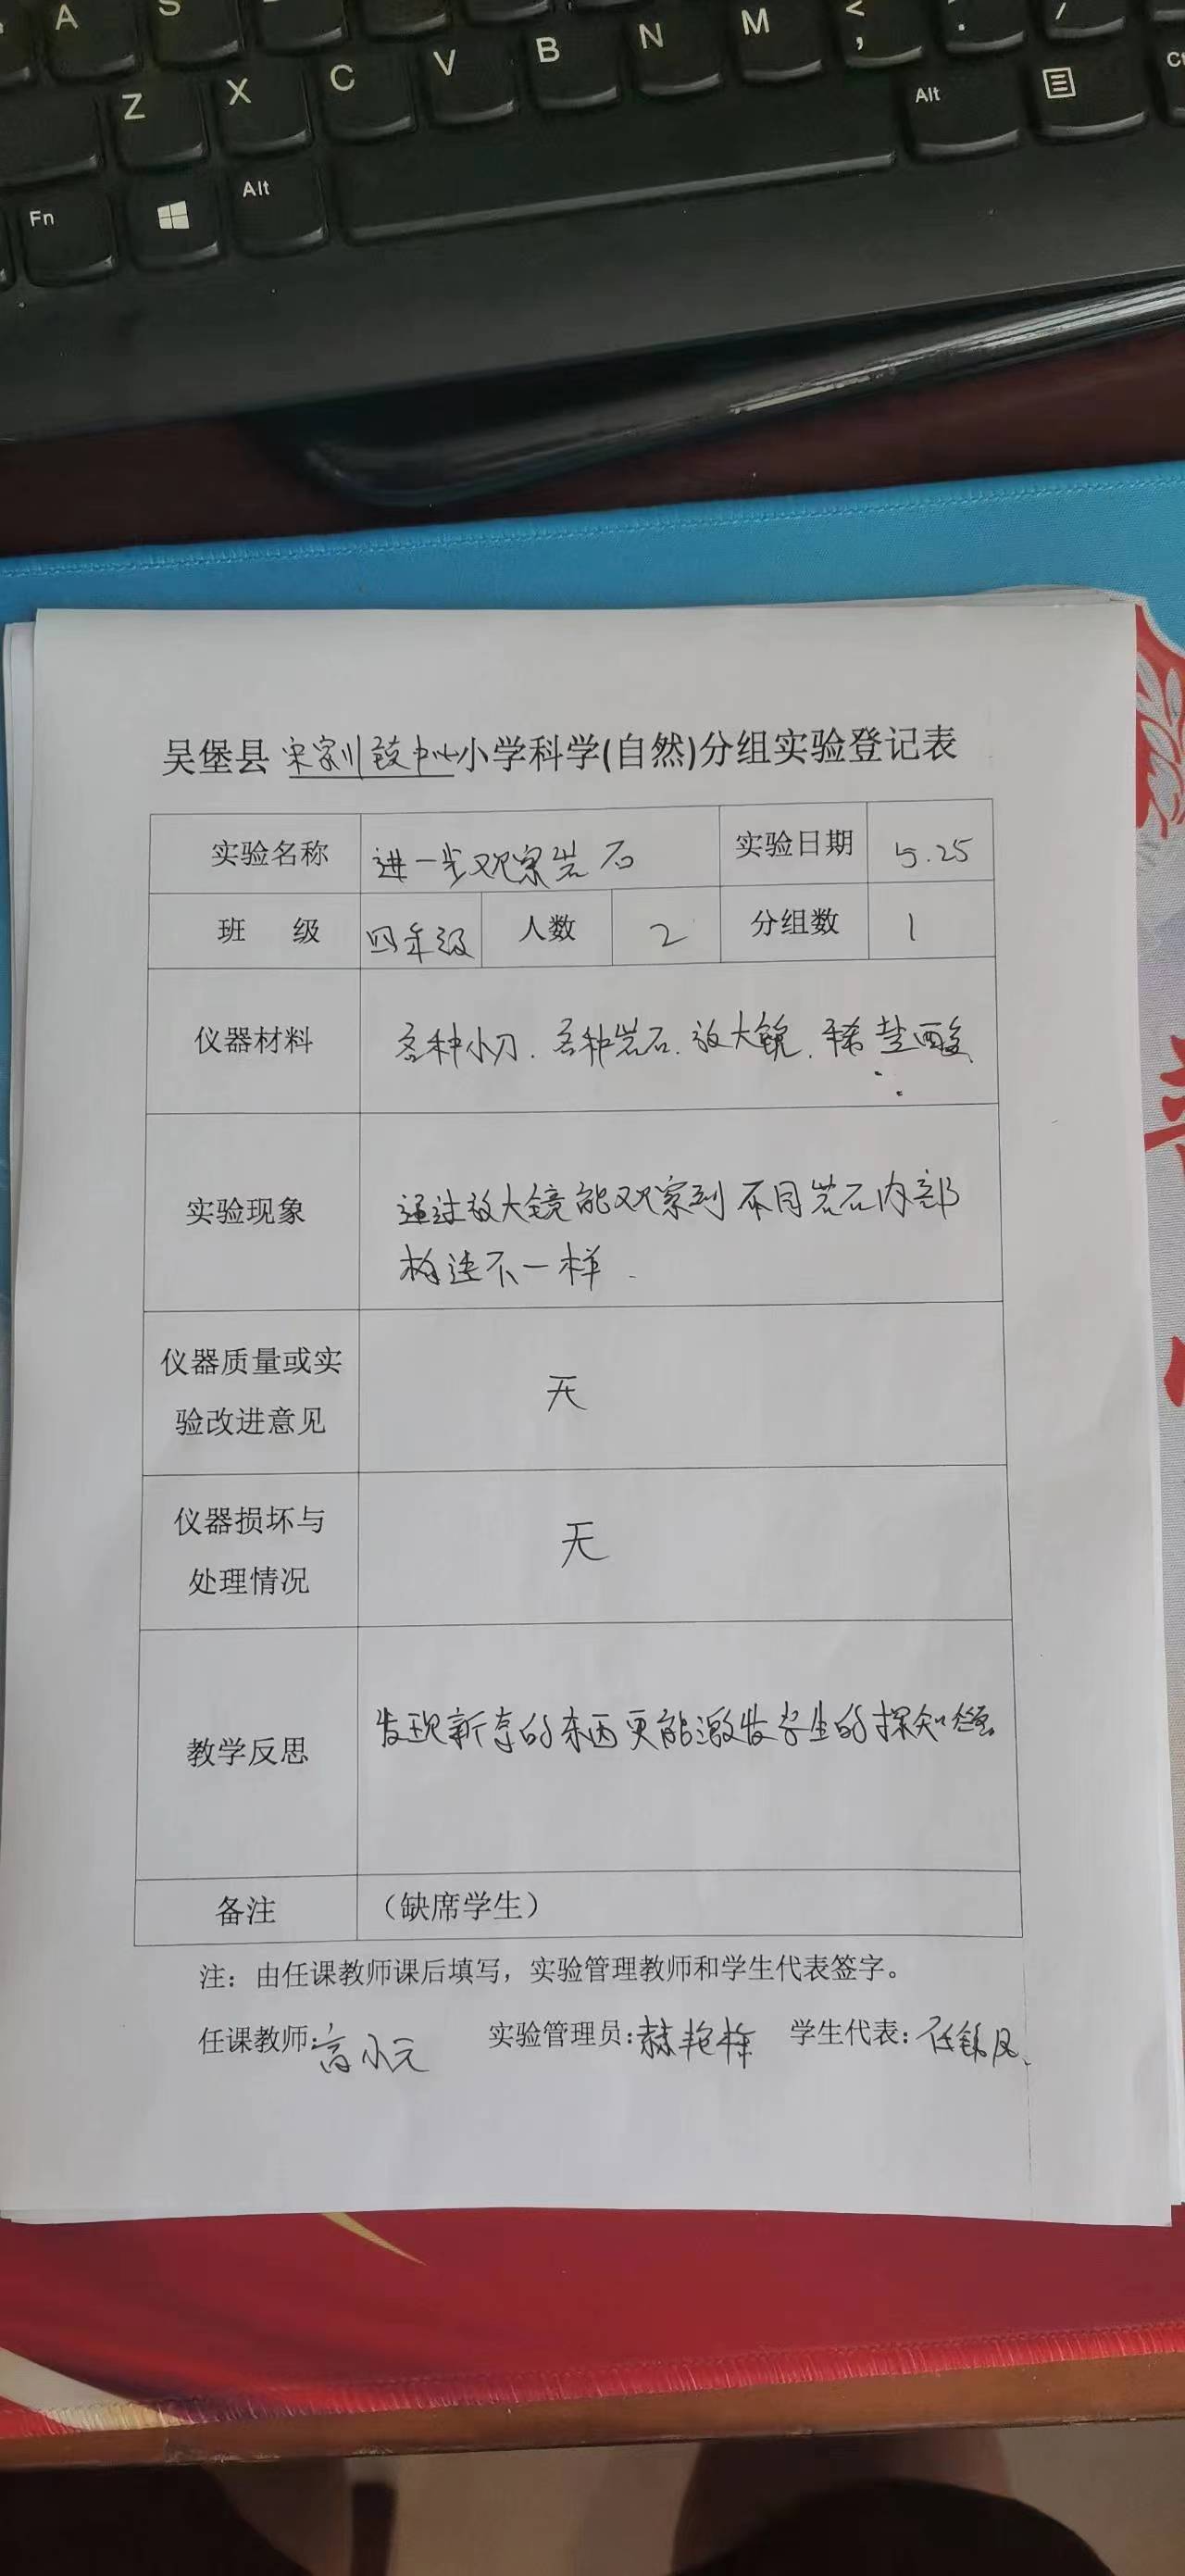 A S
Z X C V B N M < ,
Fn Alt Alt
吴堡县 宋家川镇中心小学科学(自然)分组实验登记表
实验名称 进一步观察岩石 实验日期 5.25
班 级 四年级 人数 2 分组数 1
仪器材料 各种小刀、各种岩石、放大镜、稀盐酸
实验现象 通过放大镜能观察到不同岩石内部
构造不一样.
仪器质量或实
验改进意见
无
仪器损坏与
处理情况
无
教学反思 发现新奇的东西更能激发学生的探知欲
备注 （缺席学生）
注：由任课教师课后填写，实验管理教师和学生代表签字。
任课教师:高小元 实验管理员: 学生代表: